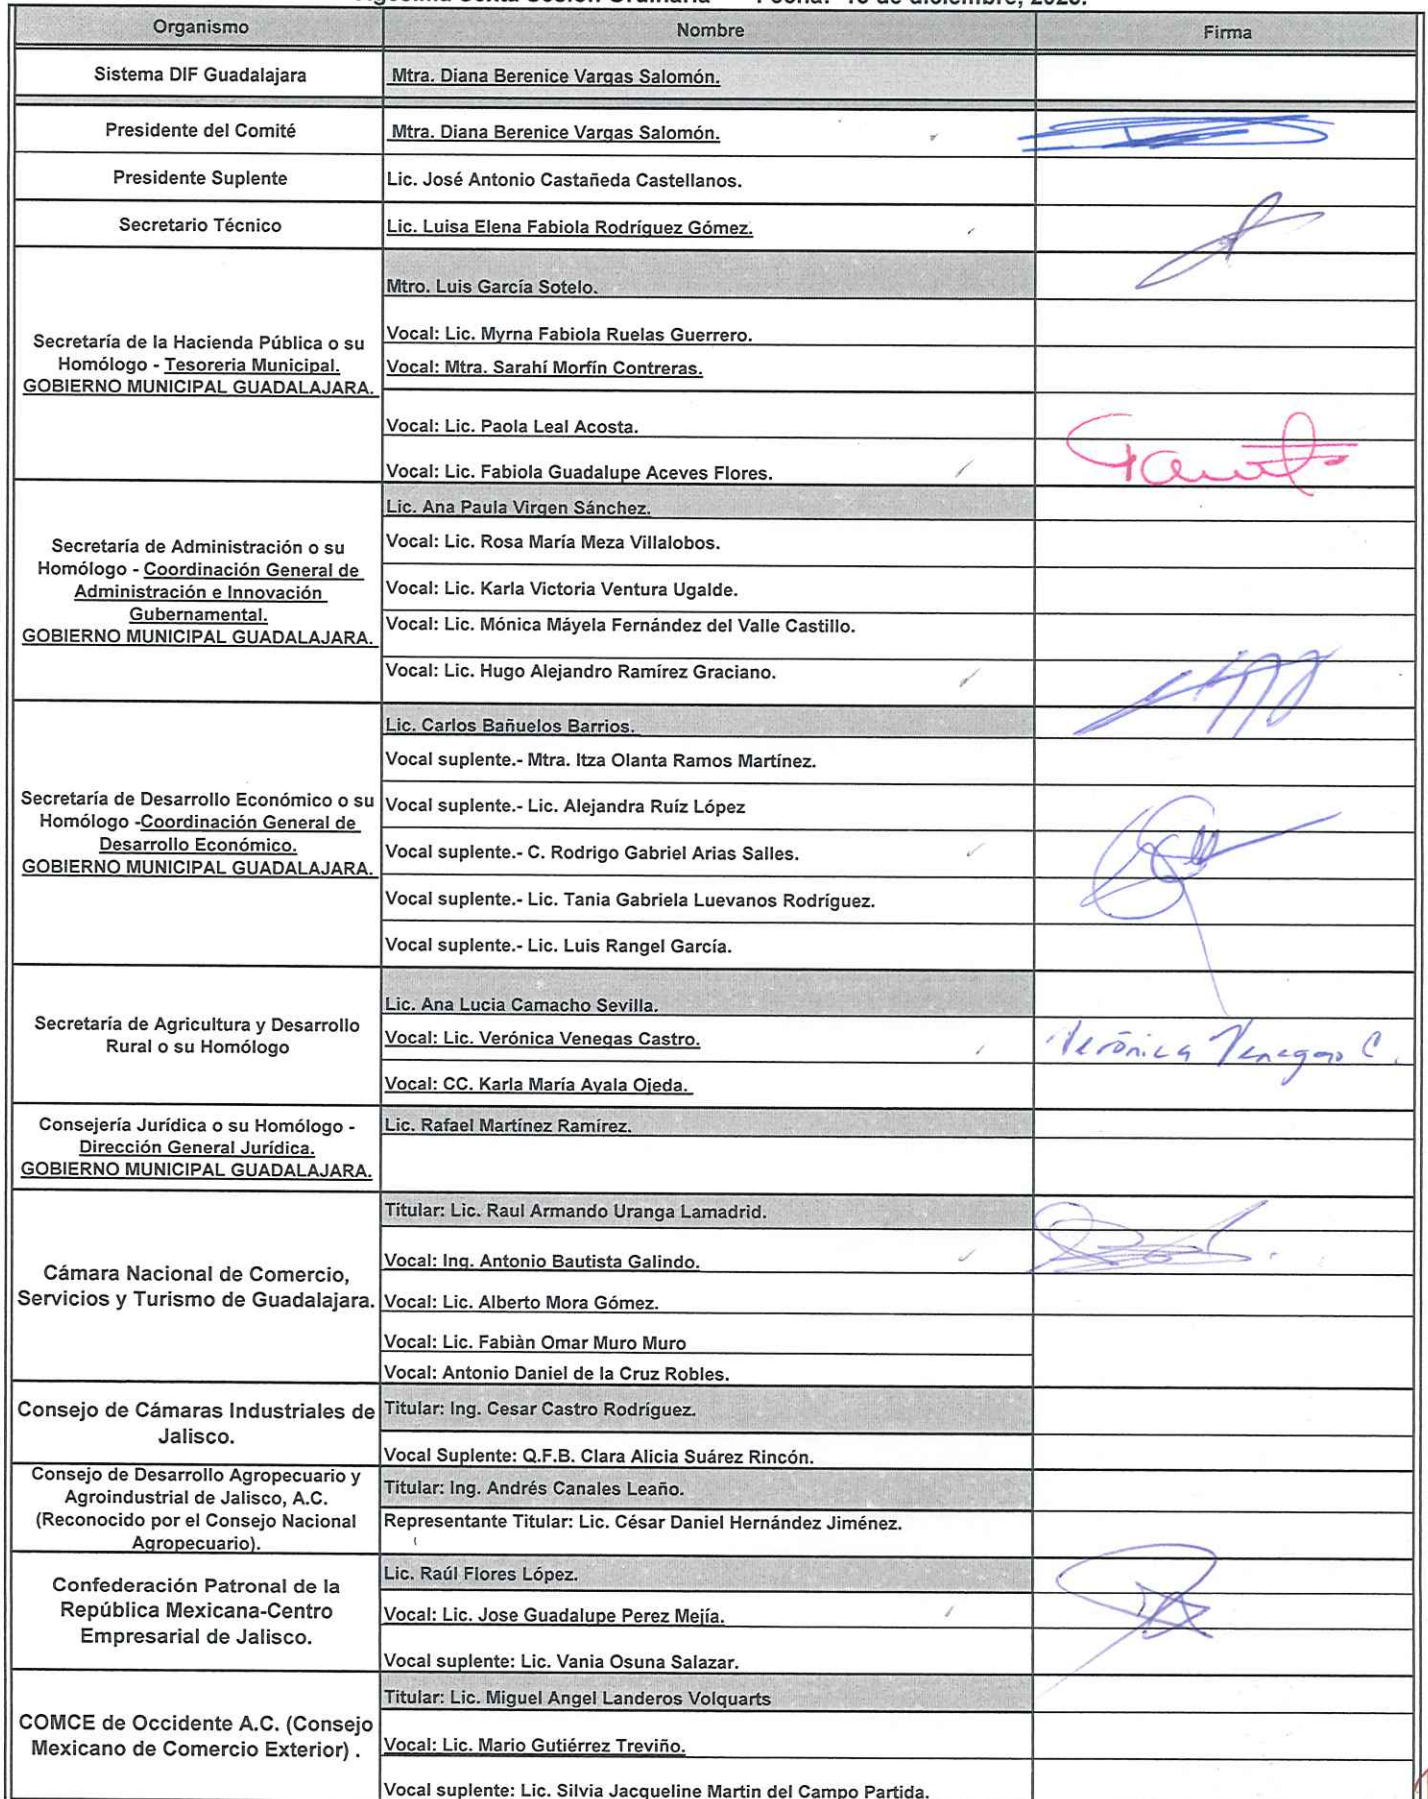 Organismo Nombre Firma
Sistema DIF Guadalajara Mtra. Diana Berenice Vargas Salomón.
Presidente del Comité Mtra. Diana Berenice Vargas Salomón.
Presidente Suplente Lic. José Antonio Castañeda Castellanos.
Secretario Técnico Lic. Luisa Elena Fabiola Rodríguez Gómez.
Secretaría de la Hacienda Pública o su
Homólogo - Tesoreria Municipal.
GOBIERNO MUNICIPAL GUADALAJARA.
Mtro. Luis García Sotelo.
Vocal: Lic. Myrna Fabiola Ruelas Guerrero.
Vocal: Mtra. Sarahí Morfín Contreras.
Vocal: Lic. Paola Leal Acosta.
Vocal: Lic. Fabiola Guadalupe Aceves Flores.
Secretaría de Administración o su
Homólogo - Coordinación General de
Administración e Innovación
Gubernamental.
GOBIERNO MUNICIPAL GUADALAJARA.
Lic. Ana Paula Virgen Sánchez.
Vocal: Lic. Rosa María Meza Villalobos.
Vocal: Lic. Karla Victoria Ventura Ugalde.
Vocal: Lic. Mónica Máyela Fernández del Valle Castillo.
Vocal: Lic. Hugo Alejandro Ramírez Graciano.
Secretaría de Desarrollo Económico o su
Homólogo -Coordinación General de
Desarrollo Económico.
GOBIERNO MUNICIPAL GUADALAJARA.
Lic. Carlos Bañuelos Barrios.
Vocal suplente.- Mtra. Itza Olanta Ramos Martínez.
Vocal suplente.- Lic. Alejandra Ruíz López
Vocal suplente.- C. Rodrigo Gabriel Arias Salles.
Vocal suplente.- Lic. Tania Gabriela Luevanos Rodríguez.
Vocal suplente.- Lic. Luis Rangel García.
Secretaría de Agricultura y Desarrollo
Rural o su Homólogo
Lic. Ana Lucia Camacho Sevilla.
Vocal: Lic. Verónica Venegas Castro. Verónica Venegas C.
Vocal: CC. Karla María Ayala Ojeda.
Consejería Jurídica o su Homólogo -
Dirección General Jurídica.
GOBIERNO MUNICIPAL GUADALAJARA.
Lic. Rafael Martínez Ramírez.
Cámara Nacional de Comercio,
Servicios y Turismo de Guadalajara.
Titular: Lic. Raul Armando Uranga Lamadrid.
Vocal: Ing. Antonio Bautista Galindo.
Vocal: Lic. Alberto Mora Gómez.
Vocal: Lic. Fabiàn Omar Muro Muro
Vocal: Antonio Daniel de la Cruz Robles.
Consejo de Cámaras Industriales de
Jalisco.
Titular: Ing. Cesar Castro Rodríguez.
Vocal Suplente: Q.F.B. Clara Alicia Suárez Rincón.
Consejo de Desarrollo Agropecuario y
Agroindustrial de Jalisco, A.C.
(Reconocido por el Consejo Nacional
Agropecuario).
Titular: Ing. Andrés Canales Leaño.
Representante Titular: Lic. César Daniel Hernández Jiménez.
Confederación Patronal de la
República Mexicana-Centro
Empresarial de Jalisco.
Lic. Raúl Flores López.
Vocal: Lic. Jose Guadalupe Perez Mejía.
Vocal suplente: Lic. Vania Osuna Salazar.
COMCE de Occidente A.C. (Consejo
Mexicano de Comercio Exterior) .
Titular: Lic. Miguel Angel Landeros Volquarts
Vocal: Lic. Mario Gutiérrez Treviño.
Vocal suplente: Lic. Silvia Jacqueline Martin del Campo Partida.